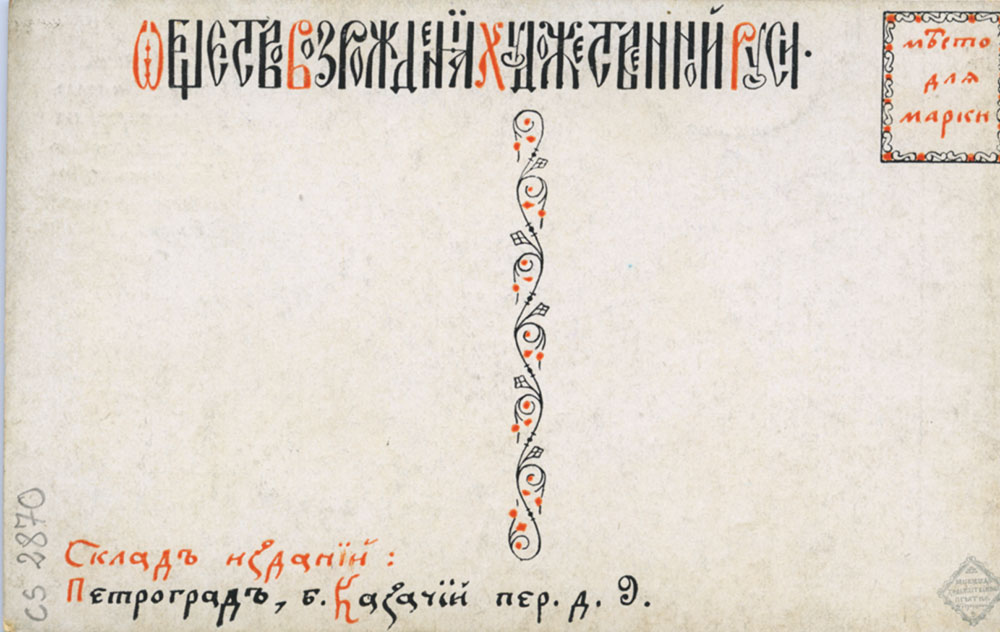 Ѡбщество Возрожденїя Художественной Руси.
мѣсто
для
марки
Складъ изданїй:
Петроградъ, б. Казачїй пер. д. 9.
CS 2870